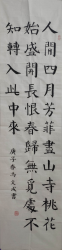 人間四月芳菲盡山寺桃花
始盛開長恨春歸無覓處不
知轉入此中來 庚子春